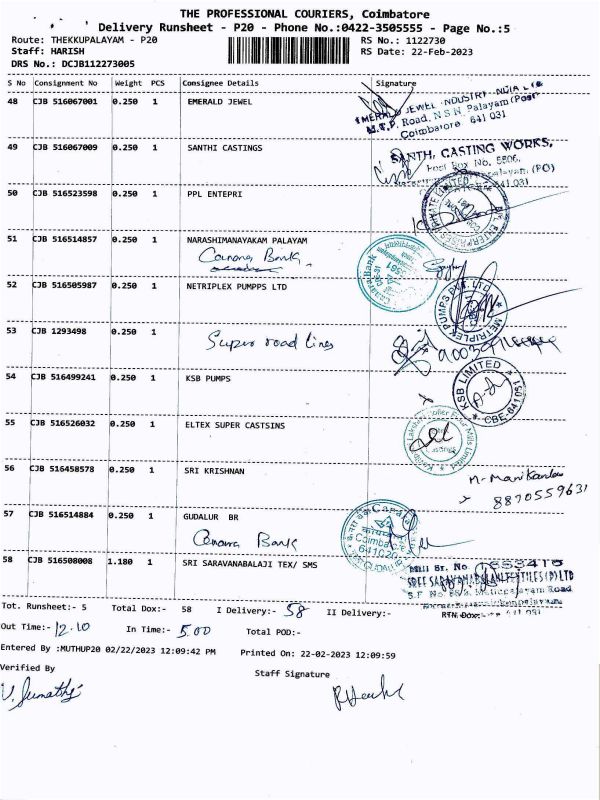 THE PROFESSIONAL COURIERS, Coimbatore
Delivery Runsheet - P20 - Phone No.:0422-3505555 - Page No.:5
Route: THEKKUPALAYAM - P20
RS No.: 1122730
Staff: HARISH
RS Date: 22-Feb-2023
DRS No.: DCJB112273005
S No Consignment No Weight PCS Consignee Details Signature
48 CJB 516067001 0.250 1 EMERALD JEWEL
EMERALD JEWEL INDUSTRY INDIA LTD
M.T.P. Road, N.S.N. Palayam (Post
Coimbatore 641 031
49 CJB 516067009 0.250 1 SANTHI CASTINGS
SANTHI CASTING WORKS,
Post Box No. 5806,
50 CJB 516523598 0.250 1 PPL ENTEPRI
51 CJB 516514857 0.250 1 NARASHIMANAYAKAM PALAYAM
Canara Bank
Canara Bank
52 CJB 516505987 0.250 1 NETRIPLEX PUMPPS LTD
METRIPLEX PUMPS PVT. LTD.
53 CJB 1293498 0.250 1
Super road lines
54 CJB 516499241 0.250 1 KSB PUMPS
KSB LIMITED
CBE-641 051
55 CJB 516526032 0.250 1 ELTEX SUPER CASTSINS
56 CJB 516458578 0.250 1 SRI KRISHNAN
8870559631
57 CJB 516514884 0.250 1 GUDALUR BR
Canara Bank
Coimbatore
641020
58 CJB 516508008 1.180 1 SRI SARAVANABALAJI TEX/ SMS
Tot. Runsheet:- 5 Total Dox:- 58 I Delivery:- 58 II Delivery:- RTN Dox:-
Out Time:- 12.10 In Time:- 5.00 Total POD:-
Entered By :MUTHUP20 02/22/2023 12:09:42 PM Printed On: 22-02-2023 12:09:59
Verified By
Staff Signature